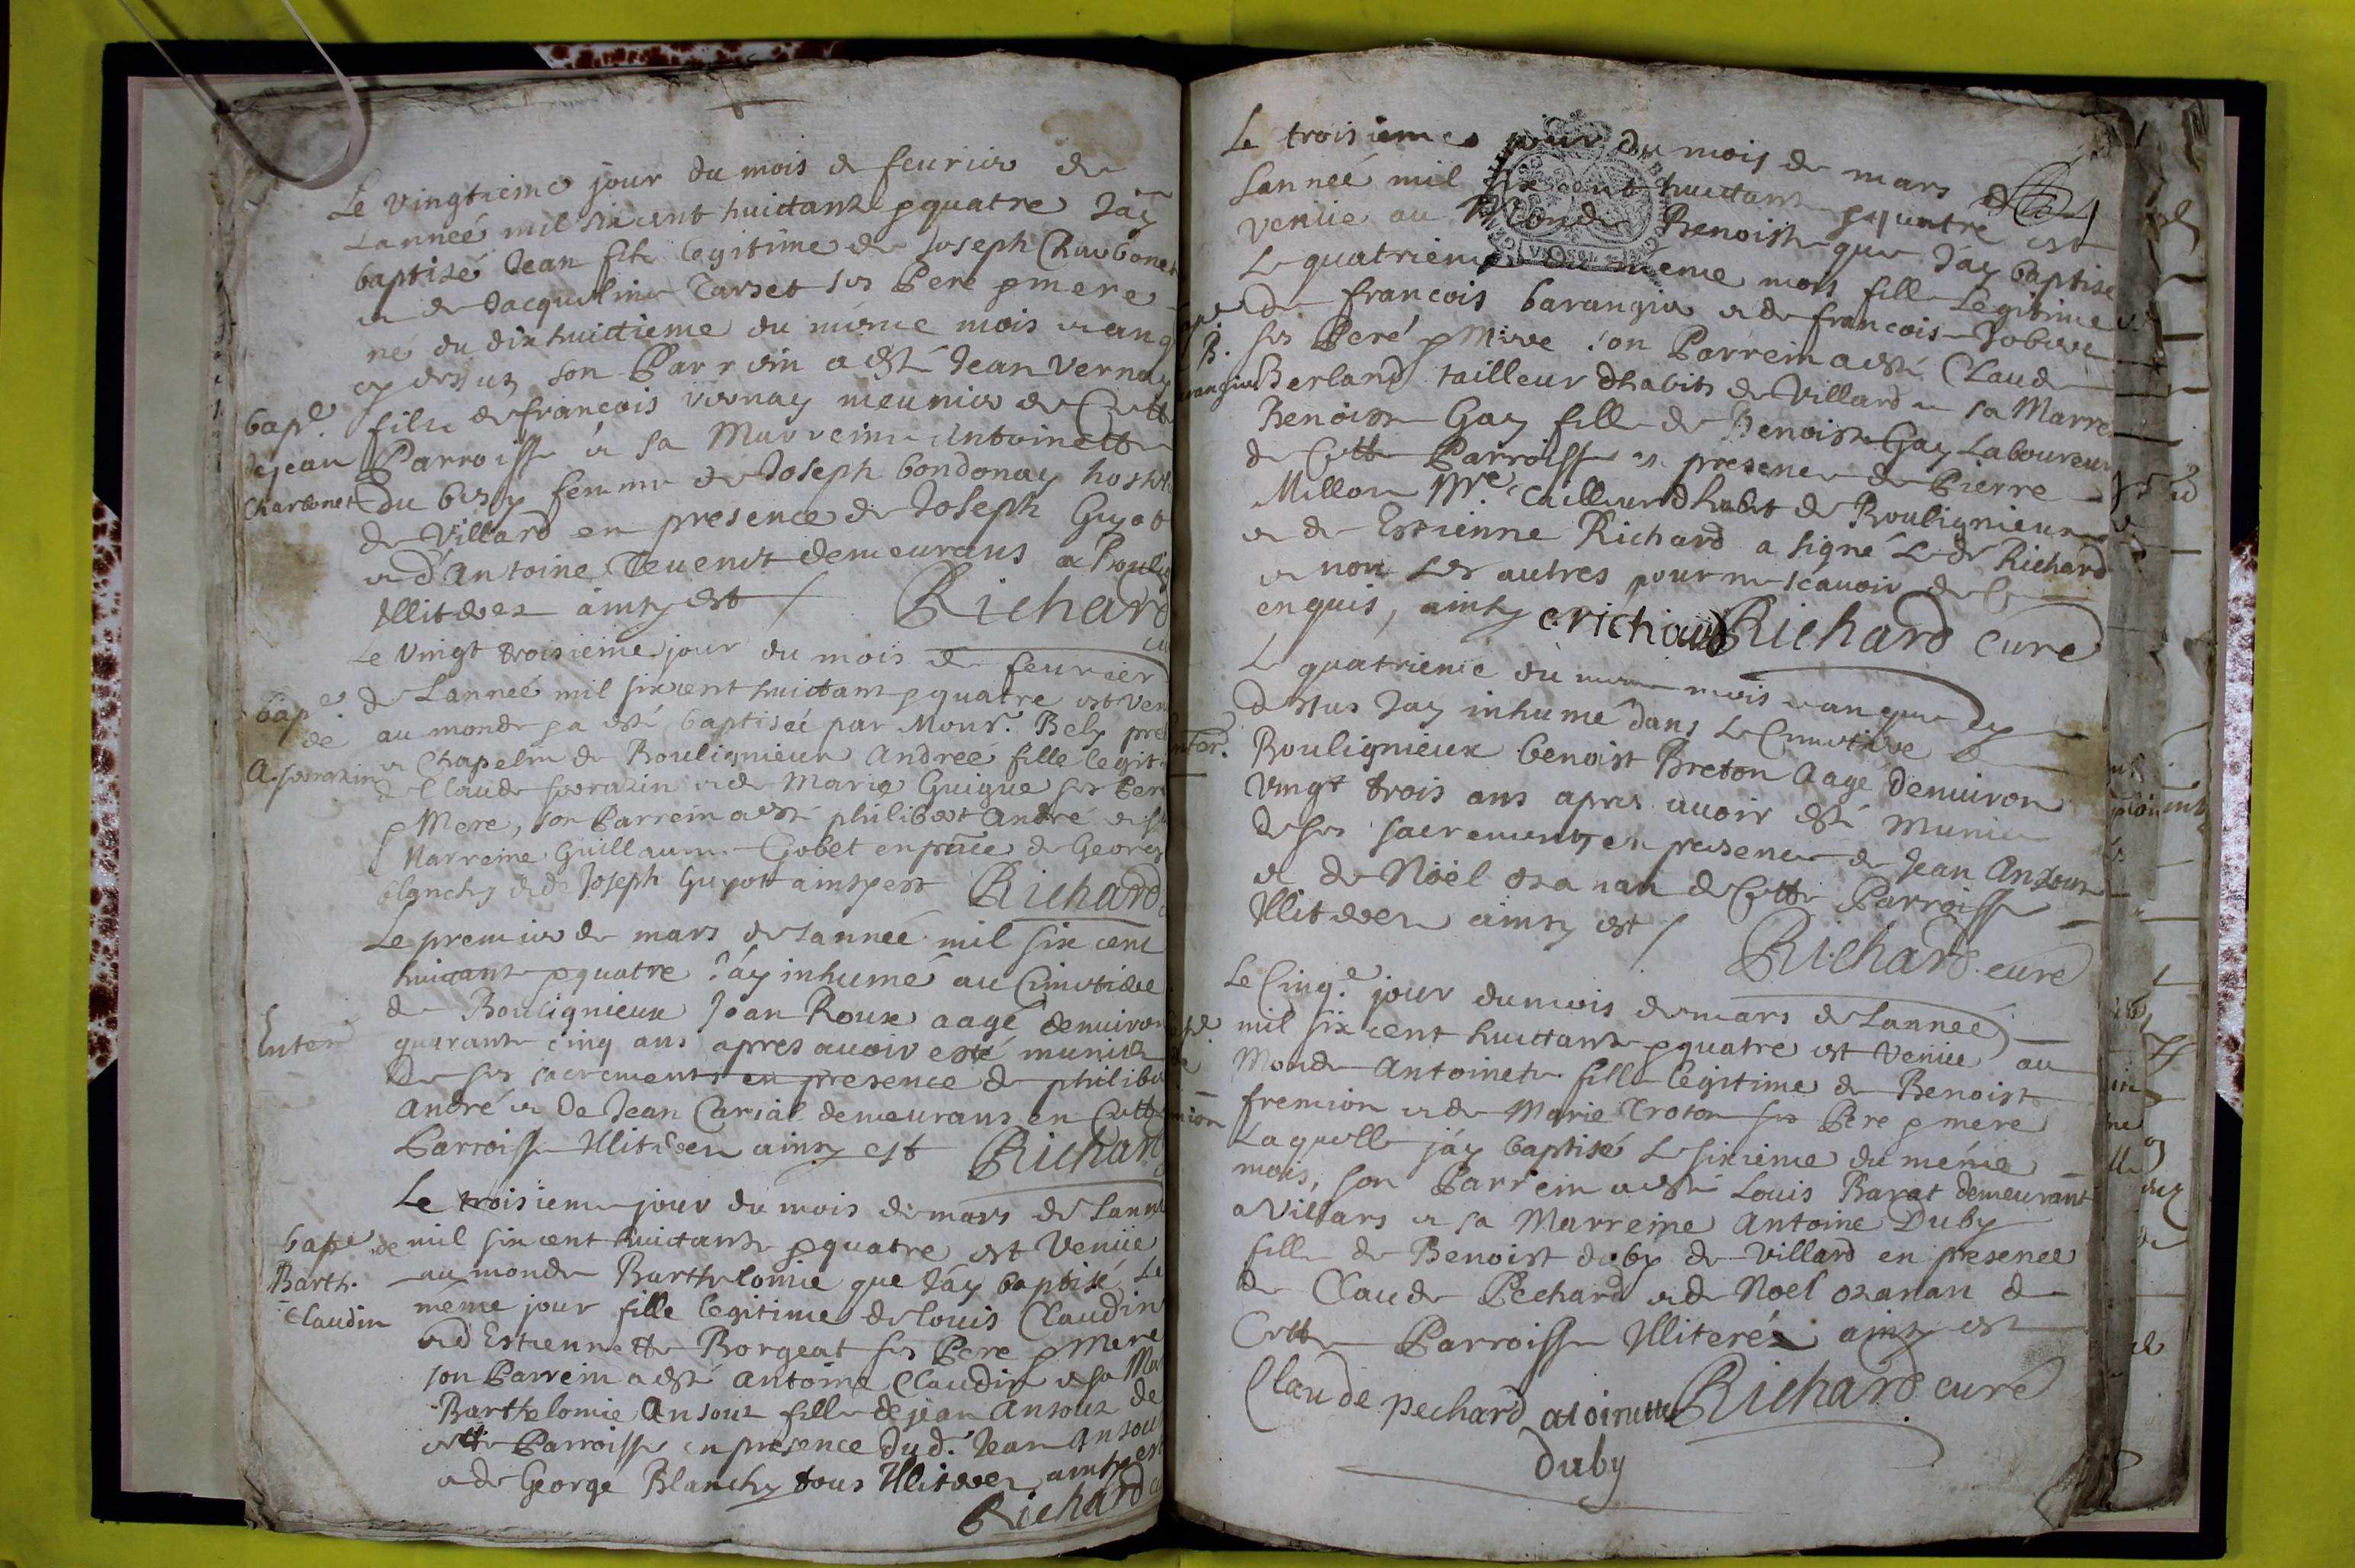 Le vingtieme jour du mois de feurier de
Lanneé mil six cent huictante & quatre Jay
baptisé Jean fils legitime de Joseph Charbonet
et de Jacqueline Tarset ses Pere & mere
né du dix huittieme du méme mois et an q
cy dessus, son Parrein a esté Jean Vernay
bap.e fils de francois Vernay meunier de Cette
de jean Parroisse et sa Marreine Antoinette
Charbonet du bessy femme de Joseph bondonay hoste
de Villard en presence de Joseph Guyot
et d'Antoine Teuenet demeurans a Boulig
Illiterez ainsy est / Richard
Le Vingt troisieme jour du mois de feurier
bap.e de Lanneé mil six cent huictante & quatre est ven
de au monde & a esté baptiseé par Monsr. Bely pre
A. sarrazin et Chapelin de Bouligneux Andreé fille legit
de Claude sarrazin et de Marie Guigue ses Pere
& Mere, son Parrein a esté philibert André et sa
Marreine Guillaume Gobet en pnce de George
blanchy et de Joseph Guyott ainsy est Richard
Le premier de mars de Lanneé mil six cent
huictante & quatre Jáy inhumé au Cimetiere
de Bouligneux Jean Roux aagé denuiron
Enter quarante cinq ans apres auoir esté muni
de ses sacrements en presence de philiber
André et de Jean Carial demeurans en Cette
Parroisse Illiterez ainsy est Richard
Le troisieme jour du mois de mars de Lanne
bap.e de mil six cent huictante & quatre est Venüe
Barth. au monde Barthelomie que Jáy baptisé Le
Claudin méme jour fille legitime de Louis Claudin
et d'Estiennette Borgeat ses Pere & Mere
son Parrein a esté Antoine Claudin et sa Mar
Barthelomie Ansoux fille de jean Ansoux de
cette Parroisse en presence dud. Jean Ansoux
et de George Blanchy tous Illiterez ainsy est
Richard
Le troisieme jour du mois de mars de
Lanneé mil six cent huictante & quatre est
venüe au Monde Benoiste que Jay baptisé
Le quatrieme du méme mois fille Legitime
de francois barangier et de francoise Jobert
B. ses Peré & Mere son Parrein a esté Claude
Berland tailleur dhabits de Villard et sa Marre
Benoiste Gay fille de Benoist Gay Laboureur
de Cette Parroisse en presence de Pierre
Millon Mre. tailleur dhabit de Boulignieux
et de Estienne Richard a signé Le dt Richard
et non Les autres pour ne scauoir de Ce
enquis, ainsy erichard Richard Curé
Le quatrieme du méme mois et an que cy
dessus Jay inhumé dans Le Cimetiere de
Enter. Boulignieux benoist Breton Aagé denuiron
Vingt trois ans apres auoir esté Muni
de ses sacrements en presence de Jean Ansoux
et de Nöel ozanan de Cette Parroisse
Illiterez ainsy est / Richard curé
Le Cinq.e jour du mois de mars de Lanneé
mil six cent huictante & quatre est Venüe au
Monde Antoinete fille legitime de Benoist
fremion et de Marie Croton ses Pere & mere
Laquelle jáy baptisé Le sixieme du méme
mois, son Parrein a esté Louis Barat demeurant
a Villars et sa Marreine Antoine Duby
fille de Benoist duby de Villard en presence
de Claude Pechard et de Noel ozanan de
Cette Parroisse Illiteréz ainsy est
Claude pechard atoinette Richard curé
duby